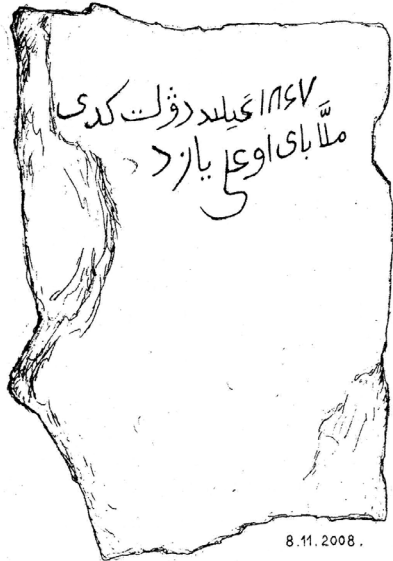 ۱۸۶۷ غیلد دۋلت کدی
ملّا بای اوغلی یازد
8.11.2008.